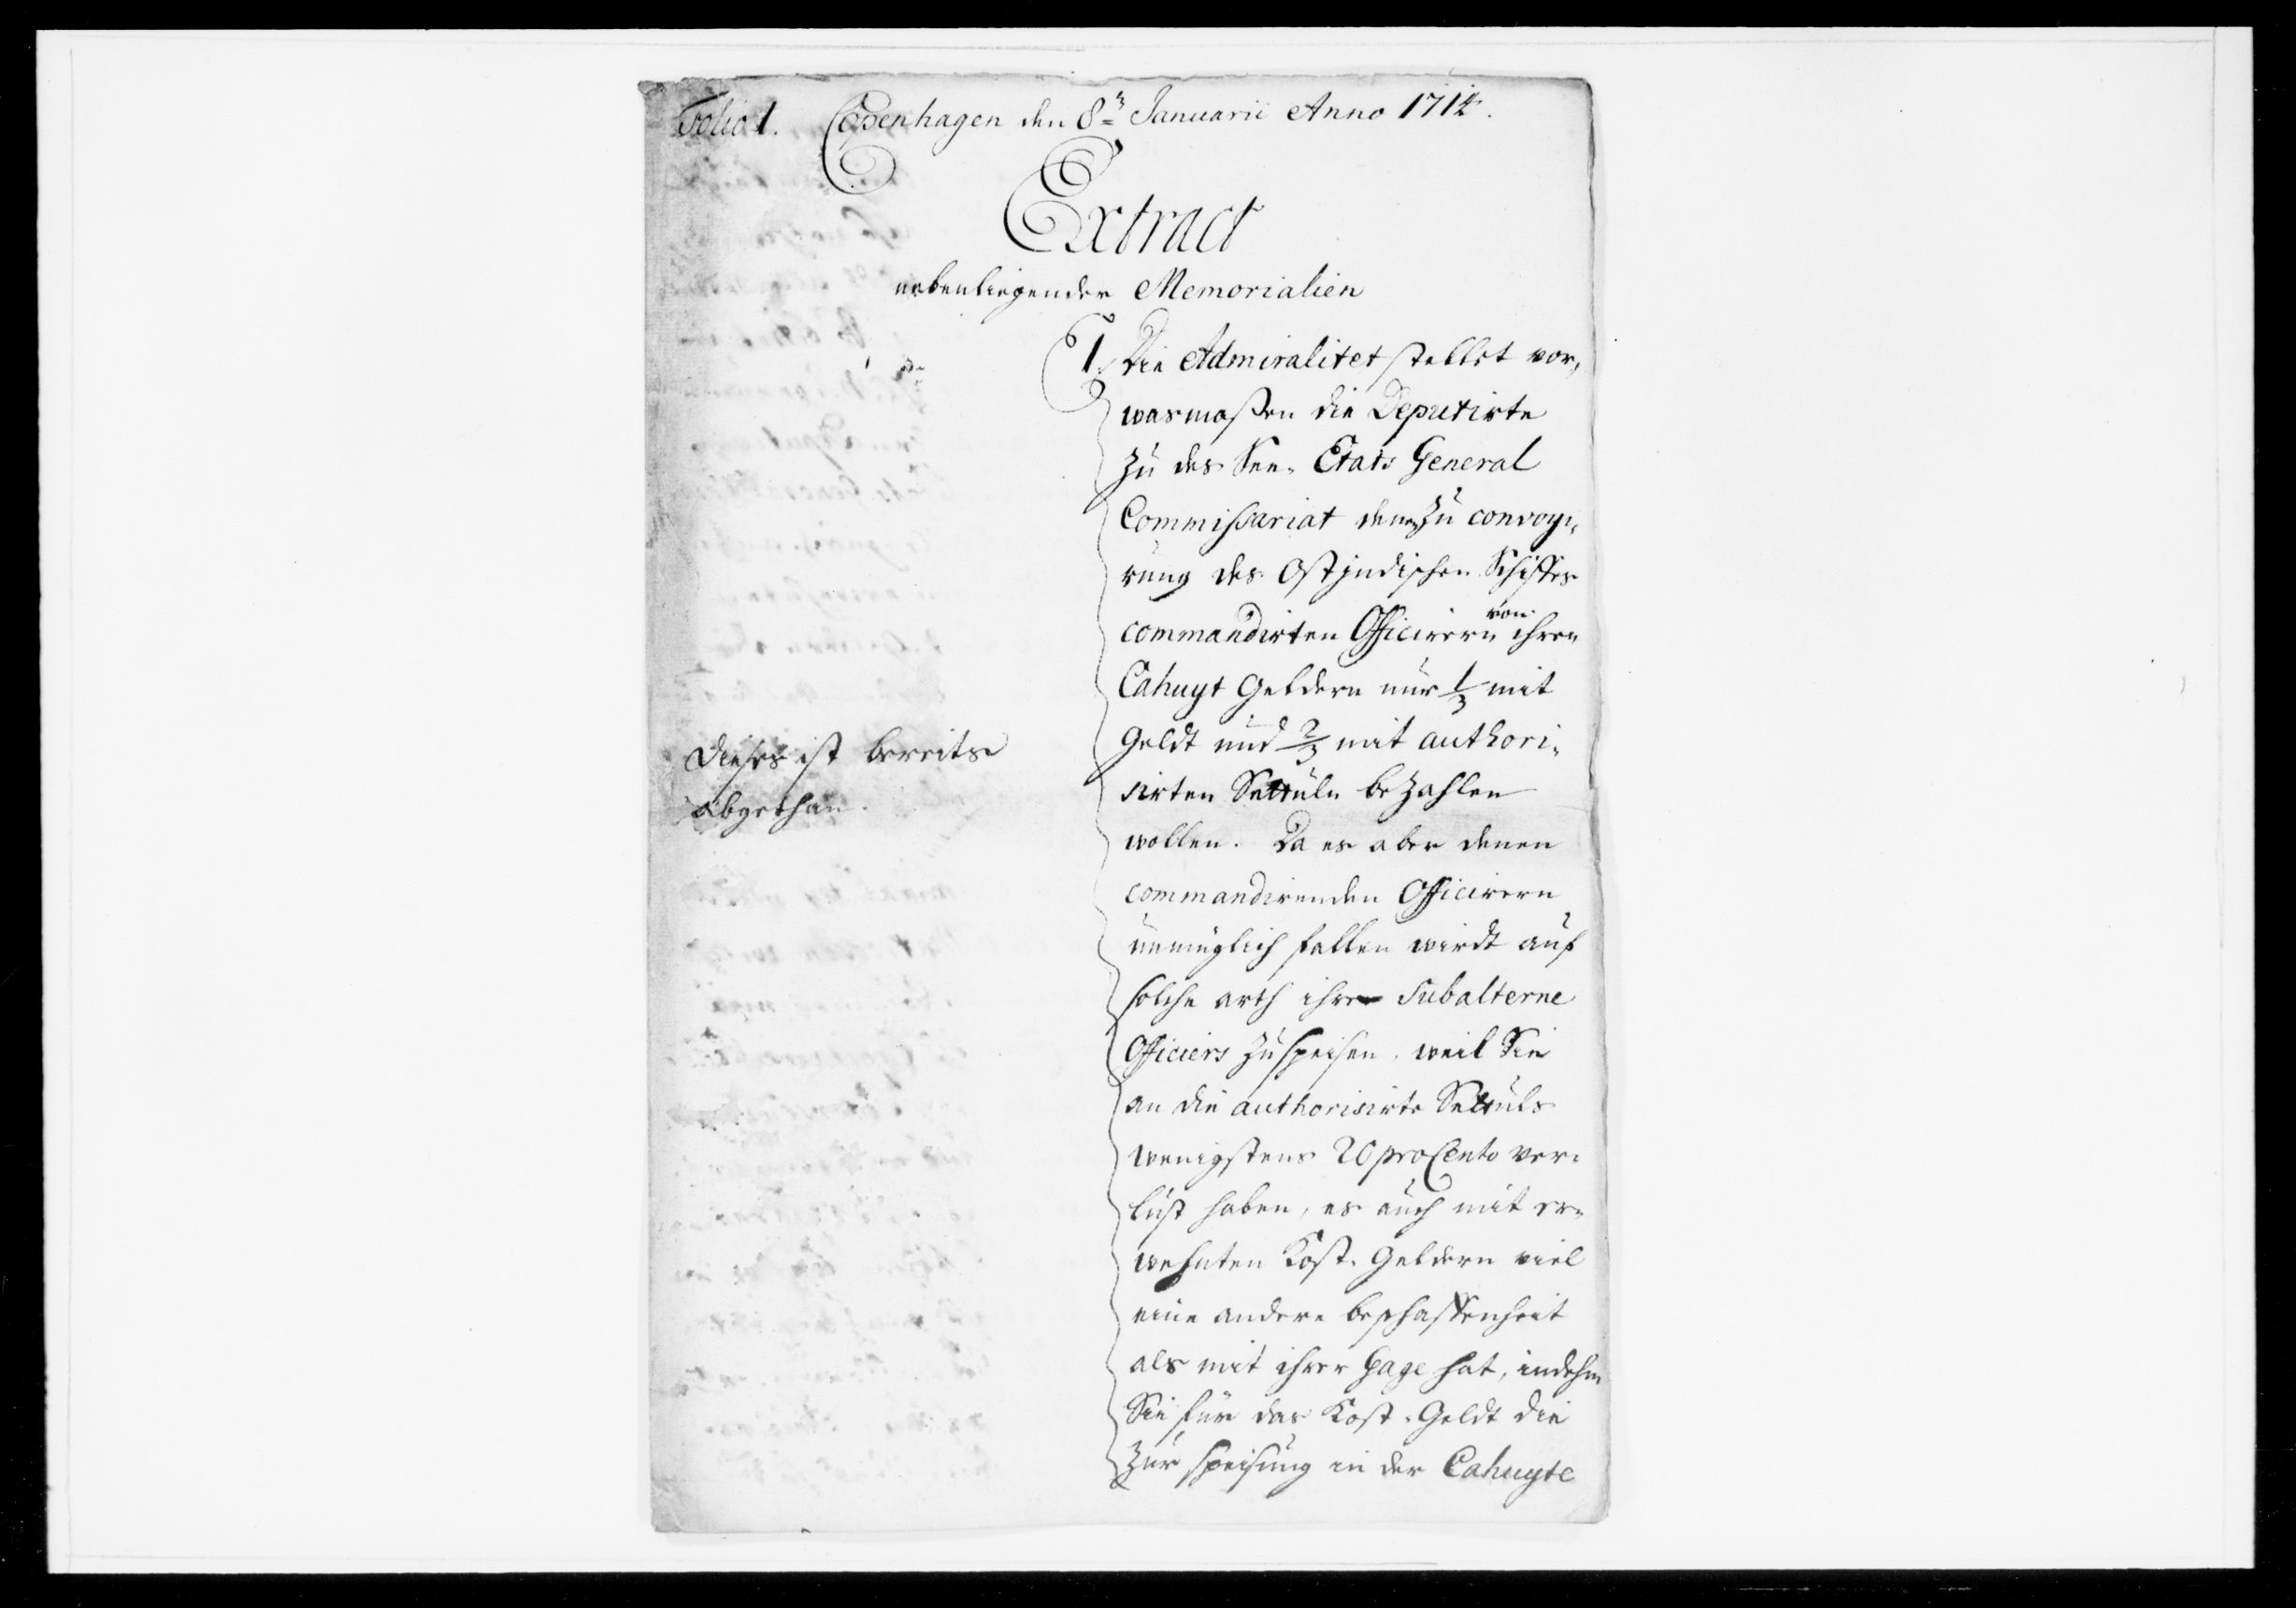 Folio 1. Copenhagen den 8n Januarii Anno 1714.
Extract
nebenliegender Memorialien
1. Die Admiralitet stellet vor,
wasmaßen die Deputirte
zu des See-Etats General
Commissariat denen zu convoyi-
rung des Ostjndischen Schiffes
commandirten Officirern von ihren
Cahuyt Geldern nur 1/3 mit
Geldt und 2/3 mit authori-
sirten Settuln bezahlen
wollen. Da es aber denen
commandirenden Officirern
unmüglich fallen wirdt auf
solche arth ihre Subalterne
Officiers zu speisen, weil Sie
an die authorisirte Settuls
wenigstens 20 pro Cento ver-
lust haben, es auch mit er-
wehnten Kost-Geldern viel
eine andere beschaffenheit
als mit ihrer Gage hat, indehm
Sie für das Kost-Geldt die
zur speisung in der Cahuyte
Dieses ist bereits
abgethan.